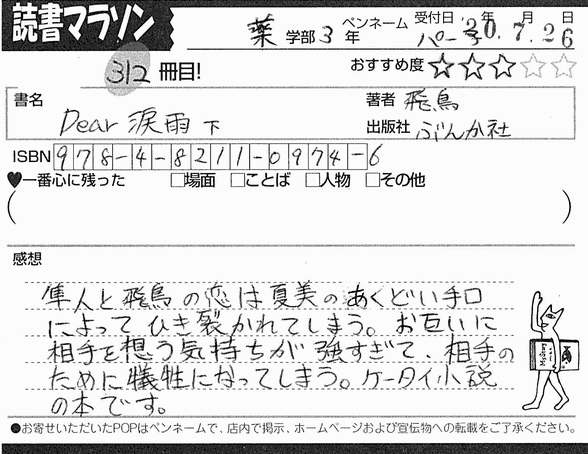 読書マラソン
薬 学部 3 年 ペンネーム パーヲ 受付日 20年 7月 26日
312 冊目!
おすすめ度 ☆☆☆☆☆
書名 Dear 涙雨 下
著者 飛鳥
出版社 ぶんか社
ISBN 978-4-8211-0974-6
♥一番心に残った □場面 □ことば □人物 □その他
( )
感想
隼人と飛鳥の恋は夏美のあくどい手口
によってひき裂かれてしまう。お互いに
相手を想う気持ちが強すぎて、相手の
ために犠牲になってしまう。ケータイ小説
の本です。
●お寄せいただいたPOPはペンネームで、店内で掲示、ホームページおよび宣伝物への転載をご了承ください。